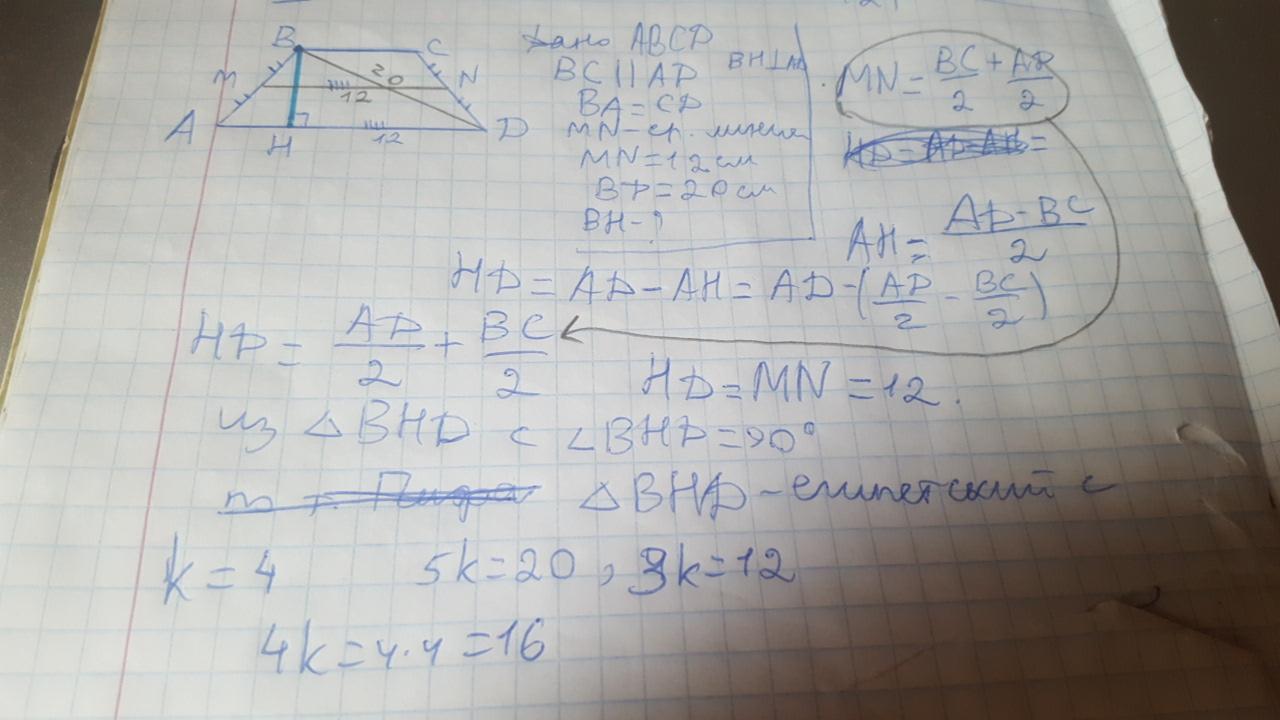 B
C
M
20
N
12
A
H
12
D
Дано ABCD
BC || AD
BH⊥
BA = CD
MN - ср. линия
MN = 12 см
BD = 20 см
BH - ?
MN = BC/2 + AD/2
AH = (AD - BC)/2
HD = AD - AH = AD - (AD/2 - BC/2)
HD = AD/2 + BC/2
HD = MN = 12.
из △BHD с ∠BHD = 90°
△BHD - египетский с
k = 4 5k = 20, 3k = 12
4k = 4·4 = 16